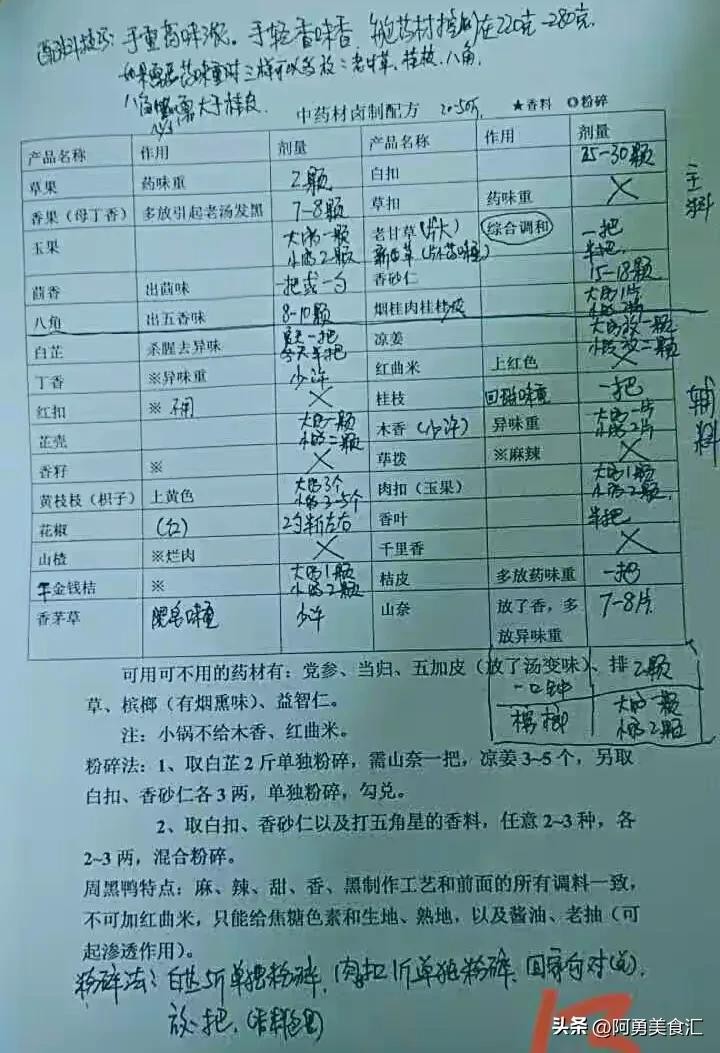 手重高味浓。手轻香味香 每包药材控制在220克-280克.
如果要药味重时三样可以多放：老甘草、桂枝、八角.
八角 大于桂皮
中药材卤制配方 20-50斤 ★香料 ◎粉碎
产品名称 作用 剂量 产品名称 作用 剂量
草果 药味重 2颗 白扣 25-30颗
香果（母丁香） 多放引起老汤发黑 7-8颗 草扣 药味重 ×
玉果 大的一颗 小的2颗 老甘草（片大） 综合调和 一把
新甘草 半把
茴香 出茴味 一把或一勺 香砂仁 15-18颗
八角 出五香味 8-10颗 烟桂肉桂桂皮 大的1片
白芷 杀腥去异味 夏天一把 冬天半把 凉姜 大的放一颗 小的放二颗
丁香 ※异味重 少许 红曲米 上红色 ×
红扣 ※ 不用 × 桂枝 一把
芷壳 大的一颗 小的二颗 木香（少许） 异味重 大的一片 小的2片
香籽 ※ × 荜拨 ※麻辣 ×
黄枝枝（枳子） 上黄色 大的3个 小的3-5个 肉扣（玉果） 大的1颗 小的2颗
花椒 （红） 2两半左右 香叶 半把
山楂 ※烂肉 × 千里香 ×
金钱桔 ※ 大的1颗 小的2颗 桔皮 多放药味重 一把
香茅草 少许 山奈 放了香，多放异味重 7-8片
可用可不用的药材有：党参、当归、五加皮（放了汤变味）、排 2颗
草、槟榔（有烟熏味）、益智仁。
槟榔 大的一颗 小的2颗
注：小锅不给木香、红曲米。
粉碎法：1、取白芷2斤单独粉碎，需山奈一把，凉姜3~5个，另取
白扣、香砂仁各3两，单独粉碎，勾兑。
2、取白扣、香砂仁以及打五角星的香料，任意2~3种，各
2~3两，混合粉碎。
周黑鸭特点：麻、辣、甜、香、黑制作工艺和前面的所有调料一致，
不可加红曲米，只能给焦糖色素和生地、熟地，以及酱油、老抽（可
起渗透作用）。
粉碎法：白芷5斤单独粉碎，肉扣1斤单独粉碎，回家勾对
放一把，
主料
辅料
13
头条 @阿勇美食汇